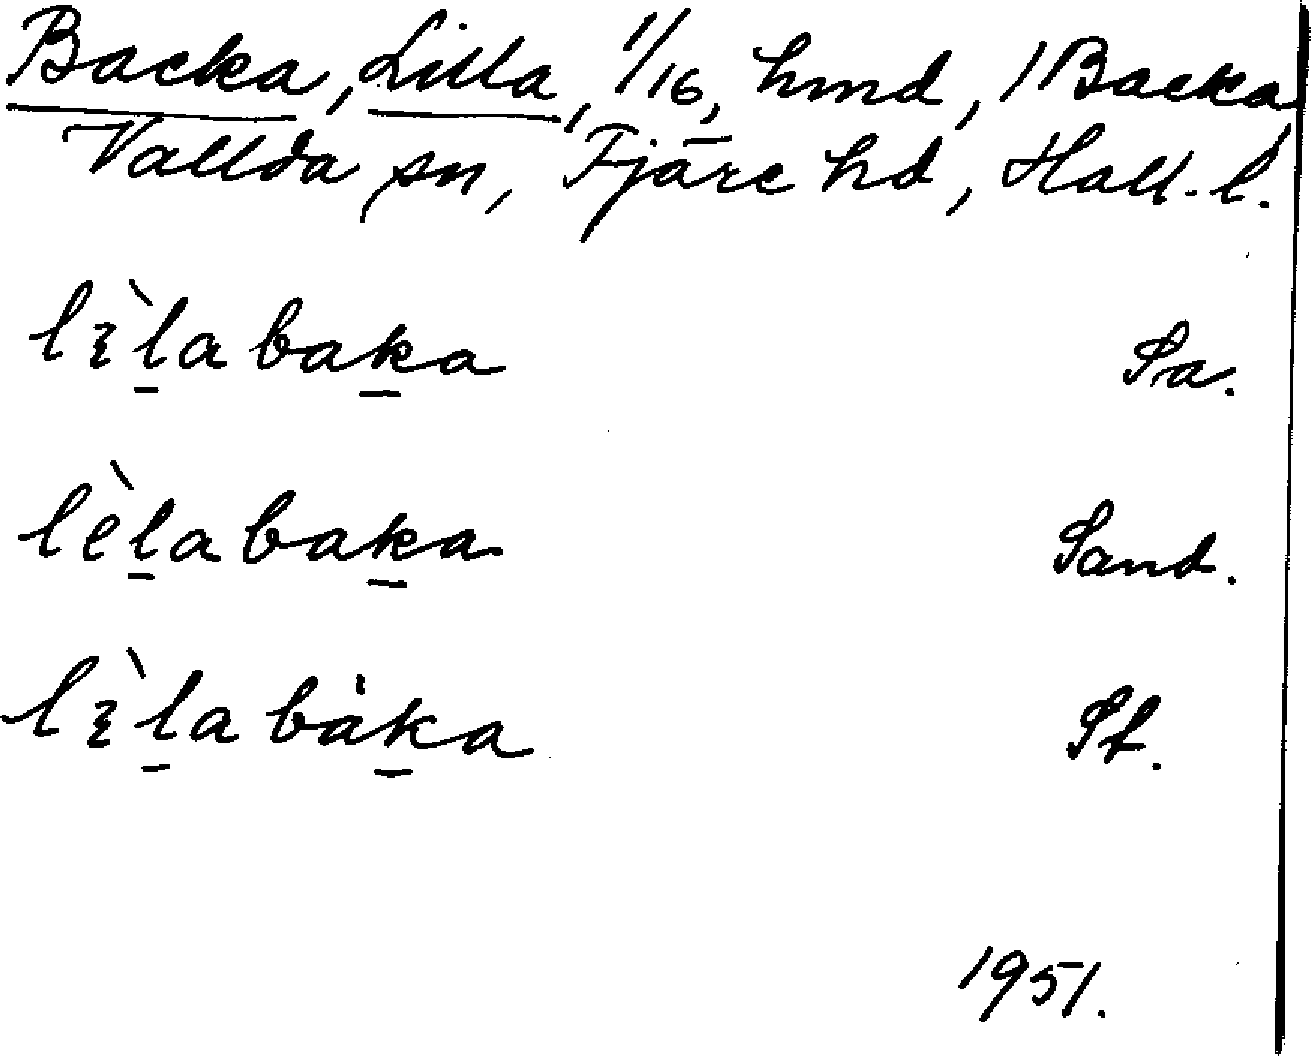 Backa, Lilla, 1/16, hmd, 1 Backa
Vallda sn, Fjäre hd, Hall. l.
lìla baka Sa.
lèla baka Sand.
lìla bàka St.
1951.